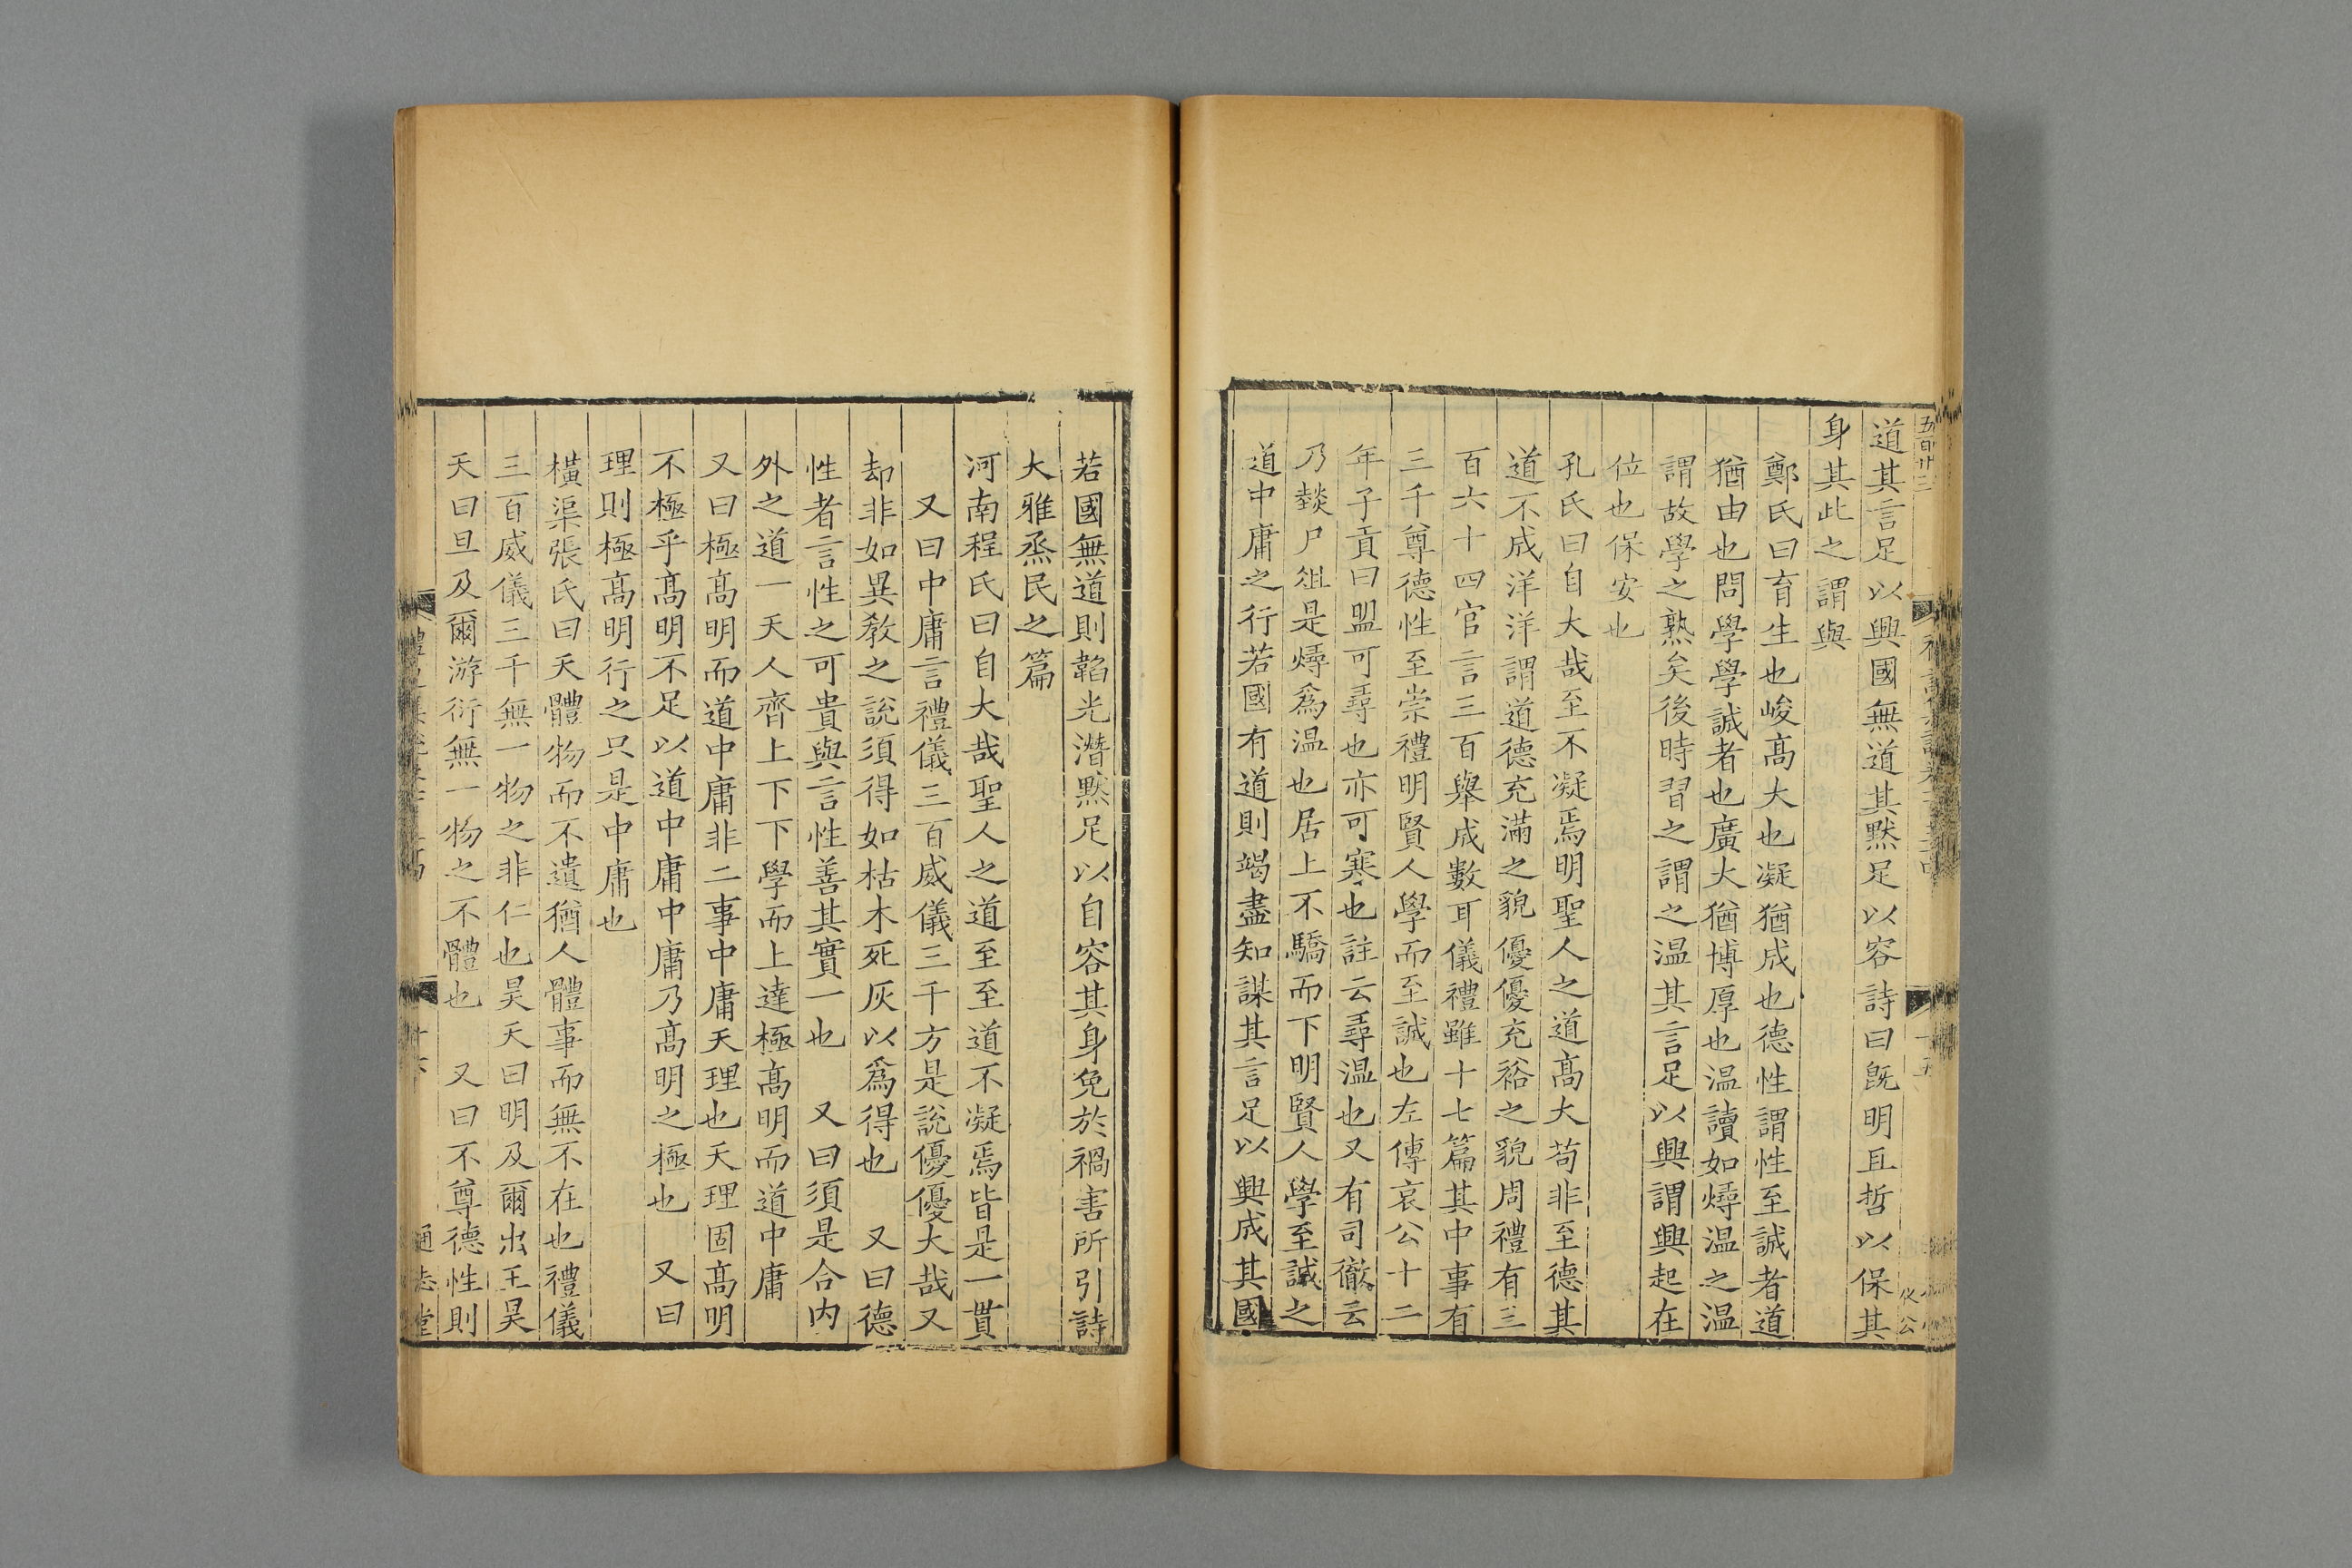 道其言足以興國無道其黙足以容詩曰旣明且哲以保其
身其此之謂與
鄭氏曰育生也峻髙大也凝猶成也德性謂性至誠者道
猶由也問學學誠者也廣大猶博厚也温讀如燖温之温
謂故學之熟矣後時習之謂之温其言足以興謂興起在
位也保安也
孔氏曰自大哉至不凝焉明聖人之道髙大苟非至德其
道不成洋洋謂道德充滿之貌優優充裕之貌周禮有三
百六十四官言三百舉成數耳儀禮雖十七篇其中事有
三千尊德性至崇禮明賢人學而至誠也左傳哀公十二
年子貢曰盟可尋也亦可寒也註云尋温也又有司徹云
乃燅尸俎是燖爲温也居上不驕而下明賢人學至誠之
道中庸之行若國有道則竭盡知謀其言足以興成其國
若國無道則韜光潛黙足以自容其身免於禍害所引詩
大雅烝民之篇
河南程氏曰自大哉聖人之道至至道不凝焉皆是一貫
又曰中庸言禮儀三百威儀三千方是說優優大哉又
却非如異敎之說須得如枯木死灰以爲得也 又曰德
性者言性之可貴與言性善其實一也 又曰須是合内
外之道一天人齊上下下學而上達極髙明而道中庸
又曰極髙明而道中庸非二事中庸天理也天理固髙明
不極乎髙明不足以道中庸中庸乃髙明之極也 又曰
理則極髙明行之只是中庸也
橫渠張氏曰天體物而不遺猶人體事而無不在也禮儀
三百威儀三千無一物之非仁也昊天曰明及爾出王昊
天曰旦及爾游衍無一物之不體也 又曰不尊德性則
通志堂